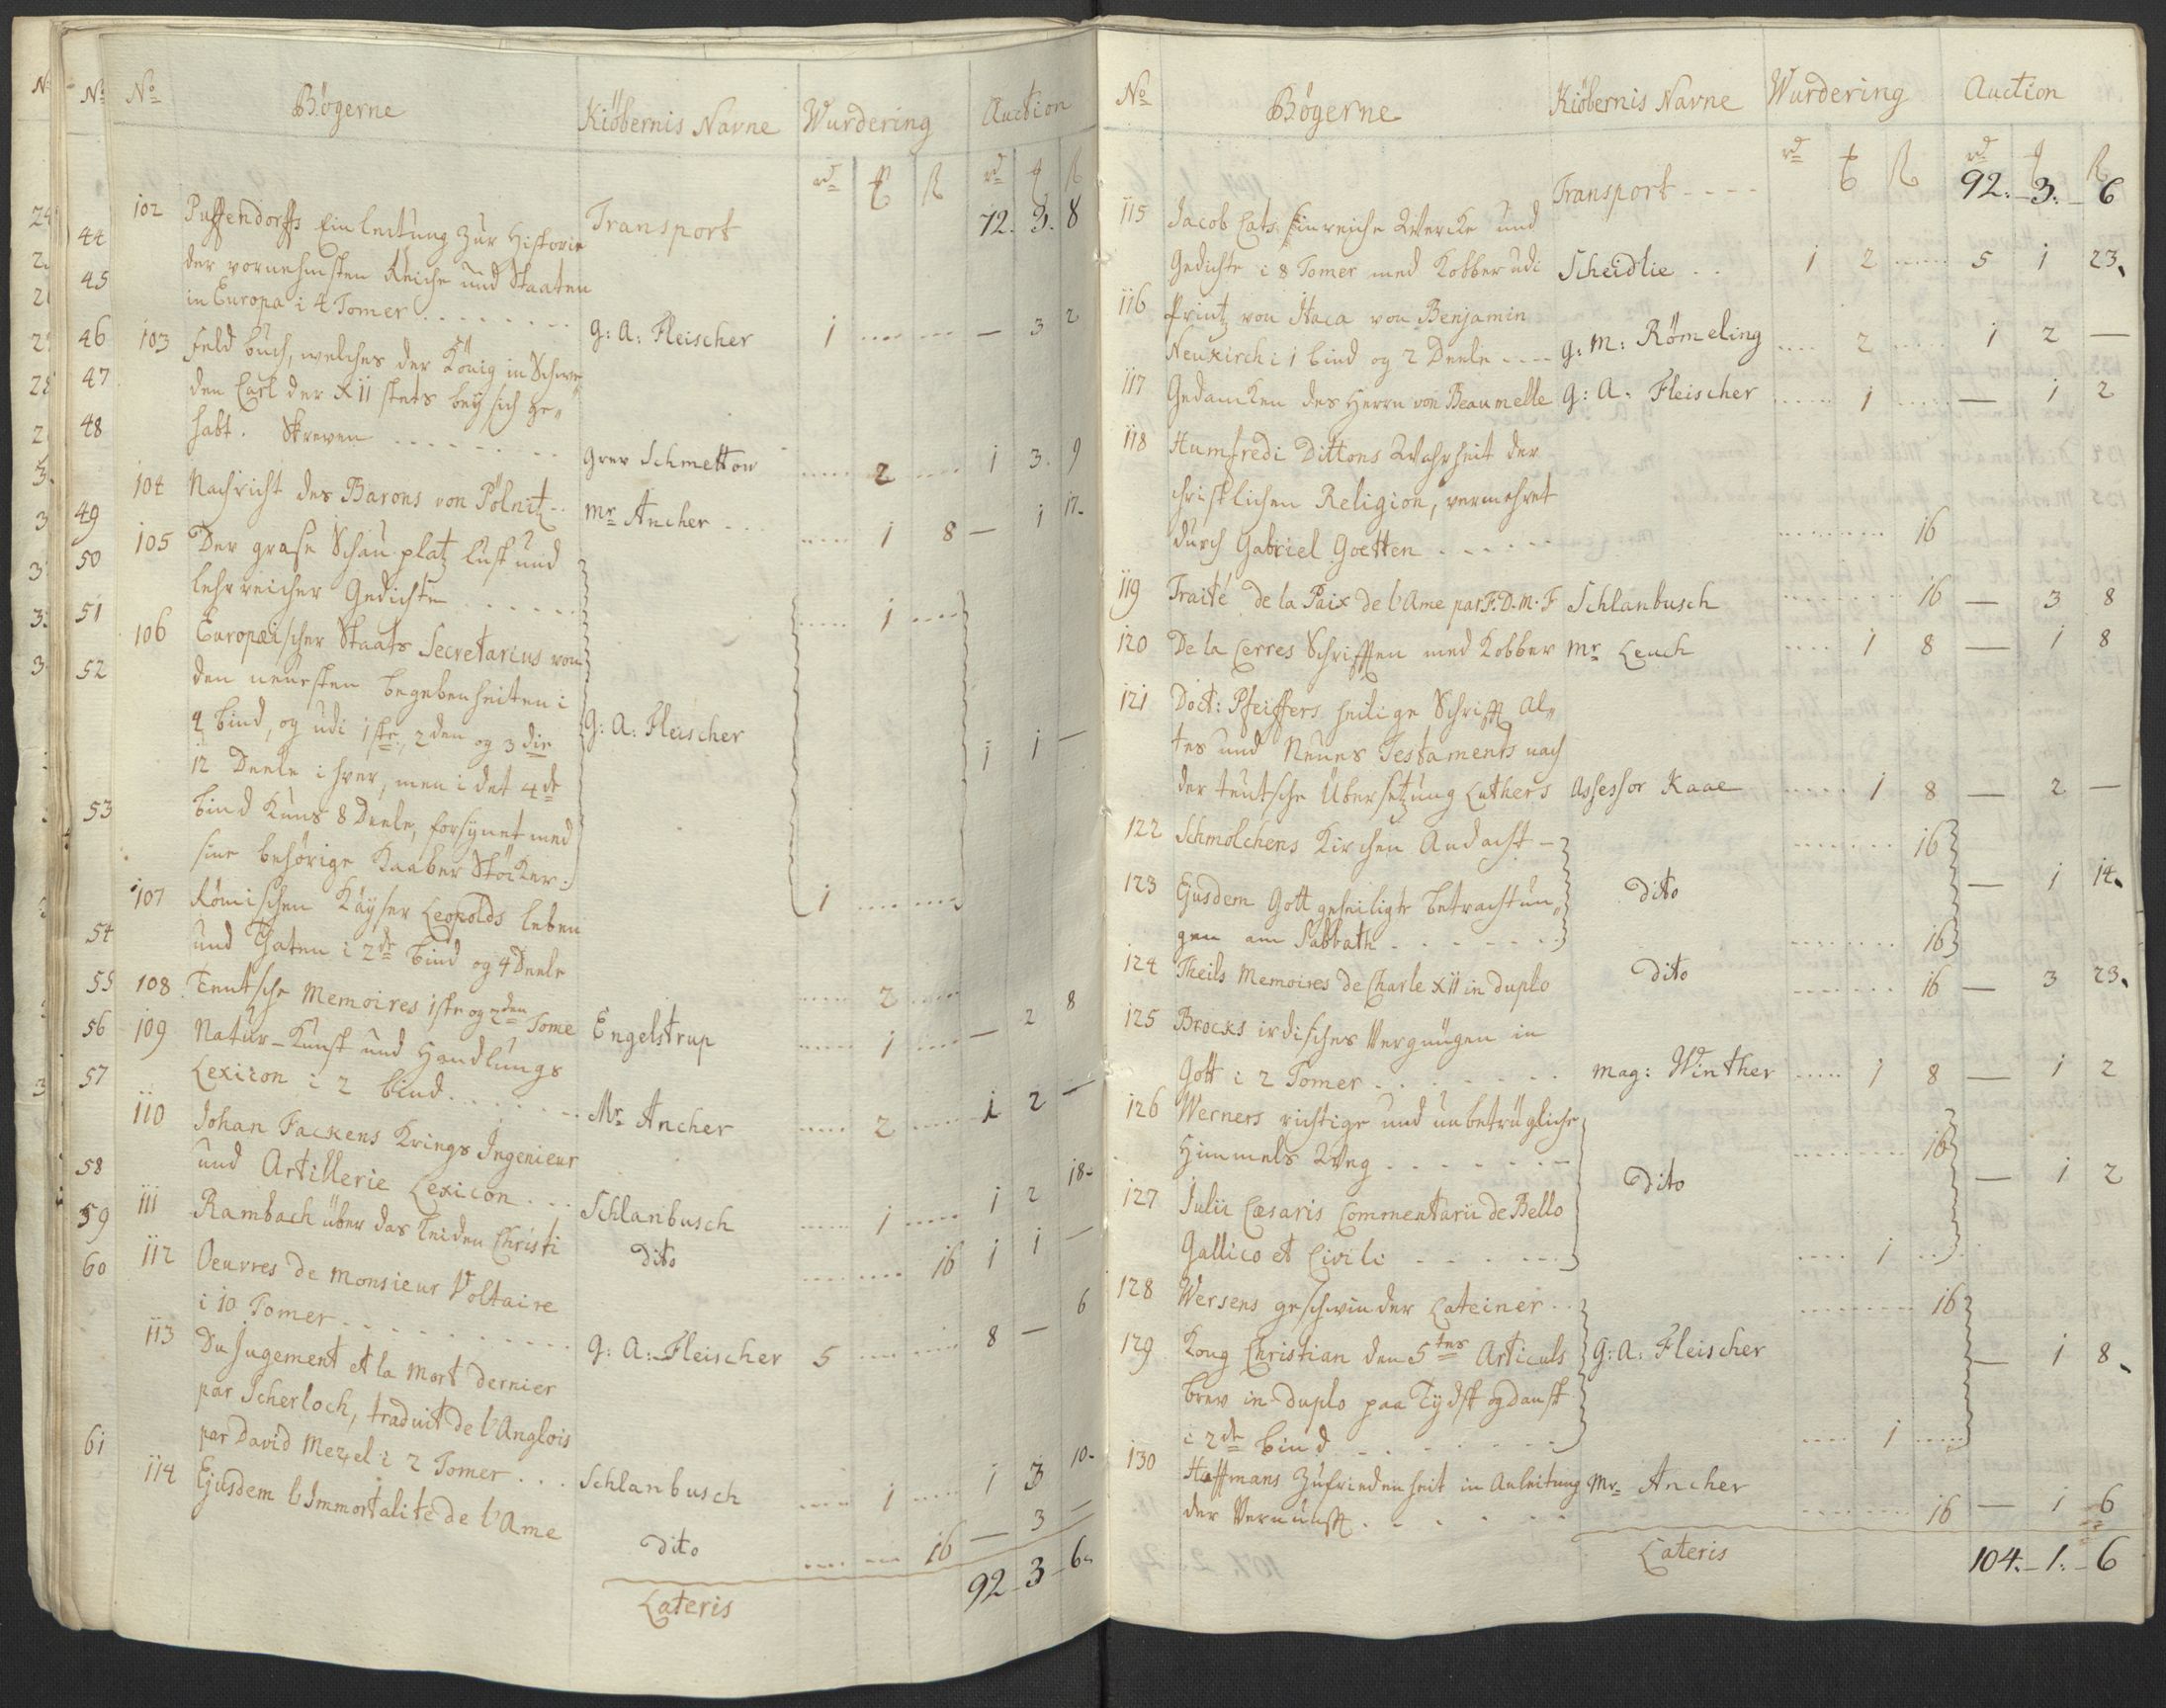 No Bögerne Kiöbernis Navne Wurdering Auction
rd ꝑ ß rd ꝑ ß
Transport 72. 3. 8
102 Puffendorffs Einleitung zur Historie
der vornehmsten Reiche und Staaten
in Europa i 4 Tomer . . . . . . . . G: A: Fleischer 1 .... .... — 3 2
103 Feld buch, welches der König in Schwe
den Carl der XII stets bey sich ge„
habt. Skreven . . . . . . . Grev Schmettow ..... 2 .... 1 3. 9
104 Nachricht des Barons von Pölnitz .. Mr Ancher ... ..... 1 8 — 1 17.
105 Der grose Schau platz lust und
lehrreicher Gedichte . . . . . . ..... 1 ....
106 Europæischer Staats Secretarius von
den neuesten begebenheiten i
4 bind, og udi 1ste, 2den og 3die G: A: Fleischer
12 Deele i hver, men i det 4de 1 1 —
bind Kuns 8 Deele, forsynet med
sine behörige Kaaber Stöcker. 1 .... ....
107 Römischen Käyser Leopolds leben
und Thaten i 2de bind og 4 Deele ..... 2 .....
108 Teutsche Memoires 1ste og 2den Tome Engelstrup ..... 1 .... — 2 8
109 Natur-Kunst und Handlungs
Lexicon i 2 bind . . . . . . . Mr Ancher ..... 2 ..... 1 2 —
110 Johan Fackens Krings Ingenieur
und Artillerie Lexicon . . . Schlanbusch ..... 1 ..... 1 2 18.
111 Rambach über das leiden Christi dito .... .... 16 1 1 —
112 Oeuvres de Monsieur Voltaire
i 10 Tomer . . . . . . . . . . G: A: Fleischer 5 .... .... 8 — 6
113 Du Jugement et la Mort dernier
par Scherloch, traduit de l'Anglois
par David Mezel i 2 Tomer . . . Schlanbusch .... 1 .... 1 3 10.
114 Ejusdem l'Immortalité de l'Ame dito .... .... 16 — 3 —
Lateris 92 3 6.
No
44
45
46
47
48
49
50
51
52
53
54
55
56
57
58
59
60
61
No Bögerne Kiöbernis Navne Wurdering Auction
rd ꝑ ß rd ꝑ ß
Transport - - - - 92. 3. 6
115 Jacob Cats Sinreiche Wercke und
Gedichte i 8 Tomer med Kobber udi Scheidlie . . 1 2 ..... 5 1 23.
116 Printz von Itaca von Benjamin
Neukirch i 1 bind og 2 Deele .... G: M: Römeling .... 2 ..... 1 2 —
117 Gedancken des Herrn von Beaumelle G: A: Fleischer ..... 1 ..... — 1 2
118 Humfredi Dittons Wahrheit der
christlichen Religion, vermehret
durch Gabriel Goetten . . . . . . ........ 16
119 Traité de la Paix de l'Ame par F. D. M. F Schlanbusch ........ 16 — 3 8
120 De la Cerres Schrifften med Kobber Mr Leuch .... 1 8 — 1 8
121 Doct: Pfeiffers heilige Schrifft Al„
tes und Neues Testaments nach
der teutsche Übersetzung Luthers Assessor Kaae ..... 1 8 — 2 —
122 Schmolchens Kirchen Andacht - ....... 16
123 Ejusdem Gott geheiligte betrachtun„ dito — 1 14.
gen am Sabbath . . . . . . . ....... 16
124 Theils Memoires de Charle XII in duplo dito ....... 16 — 3 23.
125 Brocks irdisches Vergnügen in
Gott i 2 Tomer . . . . . . . Mag: Winther ..... 1 8 — 1 2
126 Werners richtige und unbetrügliche
Himmels Weg . . . . . . . ....... 16
127 Julii Cæsaris Commentarii de Bello dito — 1 2
Gallico et Civili . . . . . . .... 1 ..
128 Wersens geschwinder Lateiner .. ........ 16
129 Kong Christian den 5tes Articuls G: A: Fleischer — 1 8.
brev in duplo paa Tydsk og dansk
i 2de bind . . . . . . . .... 1 .....
130 Hoffmans Zufriedenheit in Anleitung Mr Ancher
der Vernunfft . . . . . . ....... 16 — 1 6
Lateris 104. 1. 6